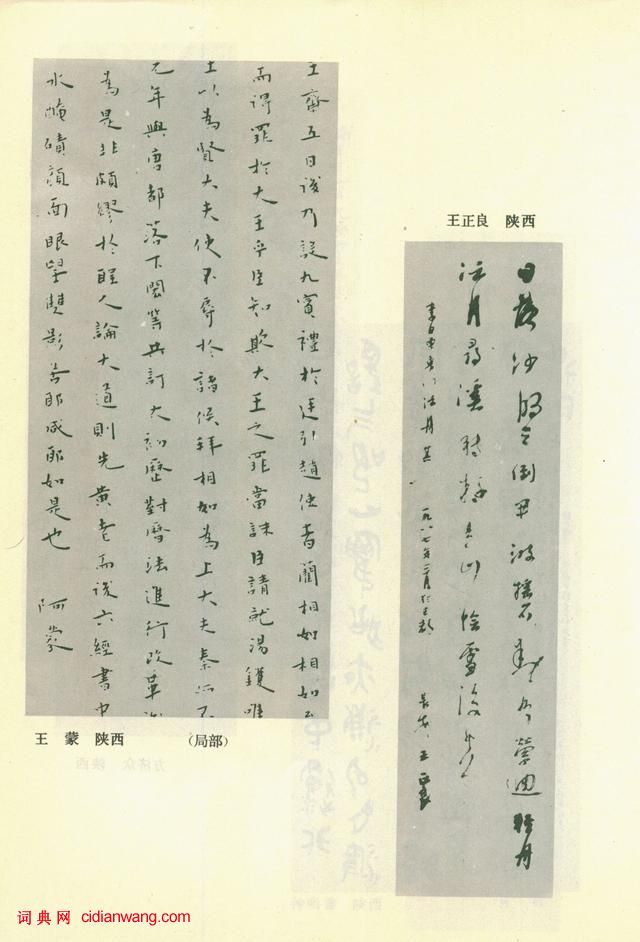 王齋五日後乃設九賓禮於廷引趙使者藺相如相如至
而得罪於大王乎臣知欺大王之罪當誅臣請就湯鑊唯
王以為賢大夫使不辱於諸侯拜相如為上大夫秦亦不
元年與唐都落下閎等共訂太初曆對曆法進行改革
為是非頗繆於聖人論大道則先黃老而後六經書中
水 磧顏面眼 雙影 耶 耶如是也 阿蒙
王 蒙 陕西 （局部）
王正良 陕西
日落沙明天倒開波搖石動水縈迴輕舟
泛月尋溪轉疑是山陰雪後來
李白東魯門泛舟其一 一九八七年二月於古都 長安 王正良
词典网 cidianwang.com